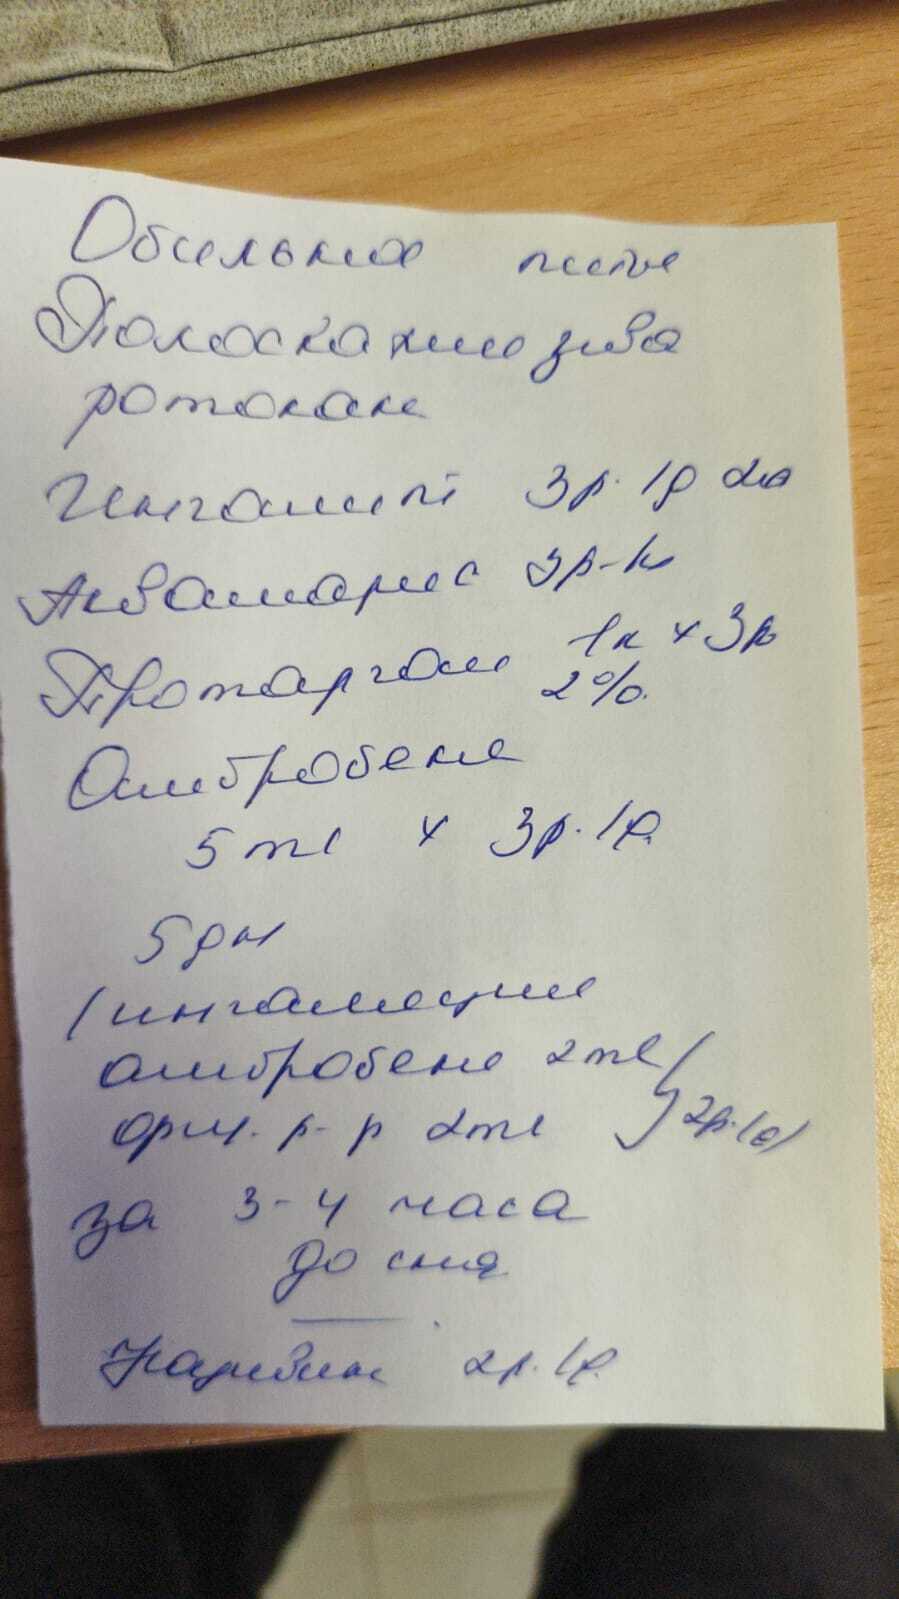 Обильное питье
Полоскание зева
ротокан
Ингалипт 3р. 1д
Аквамарис 3р-к
Протаргол 1к x 3р
2%.
Амбробене
5 ml x 3р. 1д.
5 дн
(ингаляции
амбробене 2 ml
физ. р-р 2 ml } 2р. 1д)
за 3-4 часа
до сна
Називин 2р. 1д.